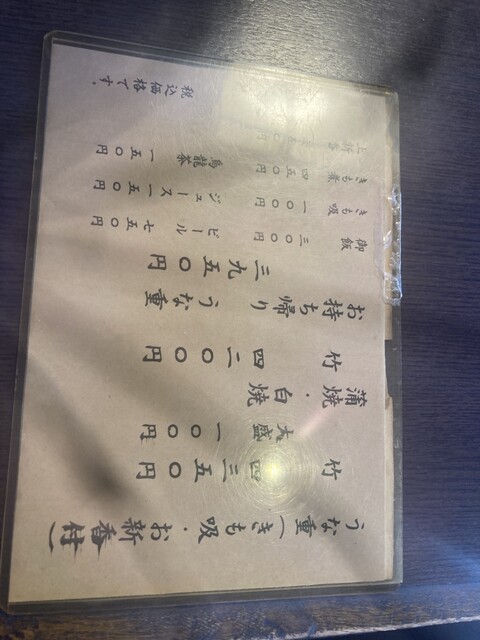 うな重(きも吸・お新香付)
竹 四三五〇円
大盛 一〇〇円
蒲焼・白焼
竹 四二〇〇円
お持ち帰り うな重
三九五〇円
御飯 三〇〇円
きも吸 一〇〇円
きも煮 四五〇円
上新香
ビール 七五〇円
ジュース 一五〇円
烏龍茶 一五〇円
税込価格です。